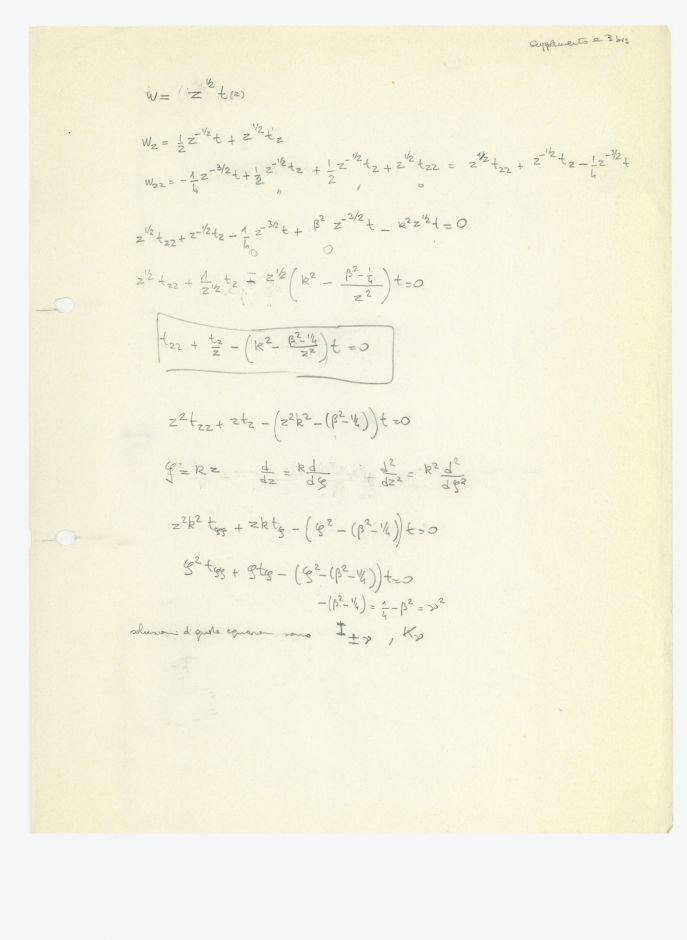 Supplemento a 3 bis
w = z^{1/2} t(z)
w_z = 1/2 z^{-1/2} t + z^{1/2} t_z
w_{zz} = -1/4 z^{-3/2} t + 1/2 z^{-1/2} t_z + 1/2 z^{-1/2} t_z + z^{1/2} t_{zz} = z^{1/2} t_{zz} + z^{-1/2} t_z - 1/4 z^{-3/2} t
z^{1/2} t_{zz} + z^{-1/2} t_z - 1/4 z^{-3/2} t + β² z^{-3/2} t - k² z^{1/2} t = 0
z^{1/2} t_{zz} + 1/z^{1/2} t_z - z^{1/2} (k² - (β² - 1/4)/z²) t = 0
t_{zz} + t_z/z - (k² - (β² - 1/4)/z²) t = 0
z² t_{zz} + z t_z - (z²k² - (β² - 1/4)) t = 0
ζ = kz d/dz = k d/dζ , d²/dz² = k² d²/dζ²
z²k² t_{ζζ} + zk t_ζ - (ζ² - (β² - 1/4)) t = 0
ζ² t_{ζζ} + ζ t_ζ - (ζ² - (β² - 1/4)) t = 0
-(β² - 1/4) = 1/4 - β² = ν²
soluzioni di questa equazione sono I_{±ν} , K_ν